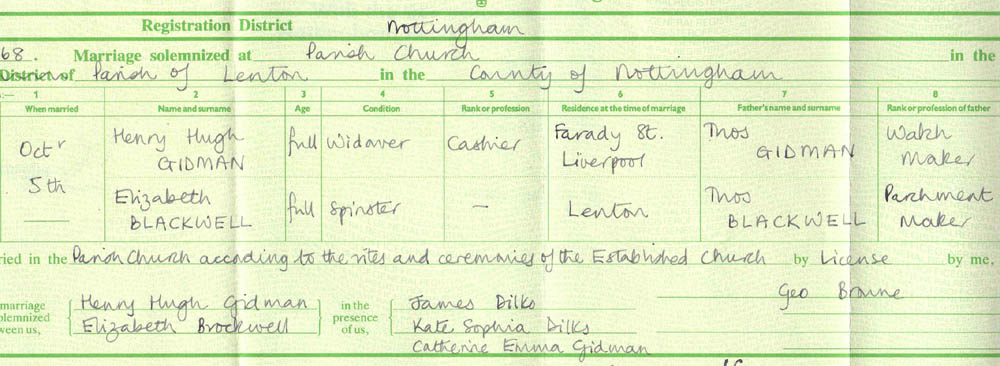 Registration District Nottingham
68. Marriage solemnized at Parish Church in the
District of Parish of Lenton in the County of Nottingham
1 2 3 4 5 6 7 8
When married Name and surname Age Condition Rank or profession Residence at the time of marriage Father's name and surname Rank or profession of father
Octr 5th Henry Hugh GIDMAN full Widower Cashier Farady St. Liverpool Thos GIDMAN Watch Maker
Elizabeth BLACKWELL full Spinster — Lenton Thos BLACKWELL Parchment Maker
ried in the Parish Church according to the rites and ceremonies of the Established Church by License by me,
Geo Browne
marriage
olemnized
ween us,
Henry Hugh Gidman
Elizabeth Brockwell
in the
presence
of us,
James Dilks
Kate Sophia Dilks
Catherine Emma Gidman